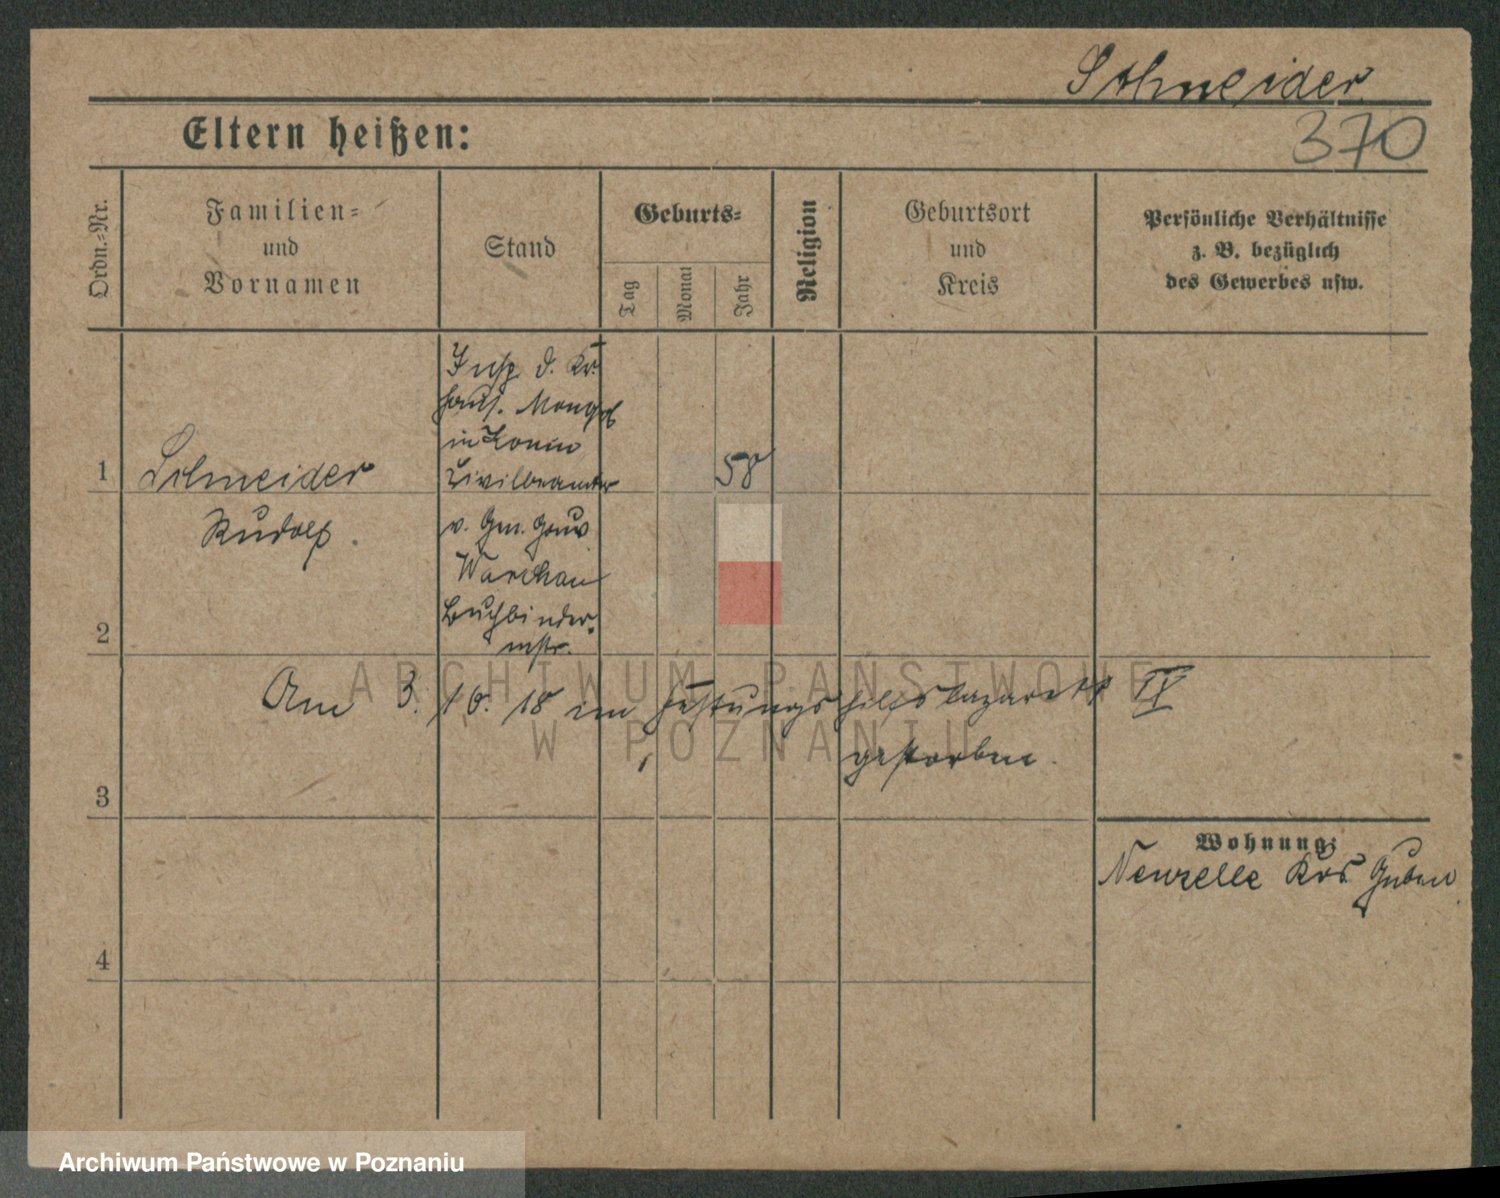 Schneider
Eltern heißen:
370
Ordn.-Nr.
Familien-
und
Vornamen
Stand
Geburts-
Tag
Monat
Jahr
Religion
Geburtsort
und
Kreis
Persönliche Verhältnisse
z. B. bezüglich
des Gewerbes usw.
Insp. d. Kr.
haus.
in Konin
1 Schneider Zivilbeamter 58
Rudolf.
v. Gen. Gouv.
Warschau
Buchbinder-
2 mstr.
Am 3. 10. 18 im Festungshilfslazarett IV
gestorben.
3
Wohnung:
Neuzelle Krs Guben
4
ARCHIWUM PAŃSTWOWE
W POZNANIU
Archiwum Państwowe w Poznaniu